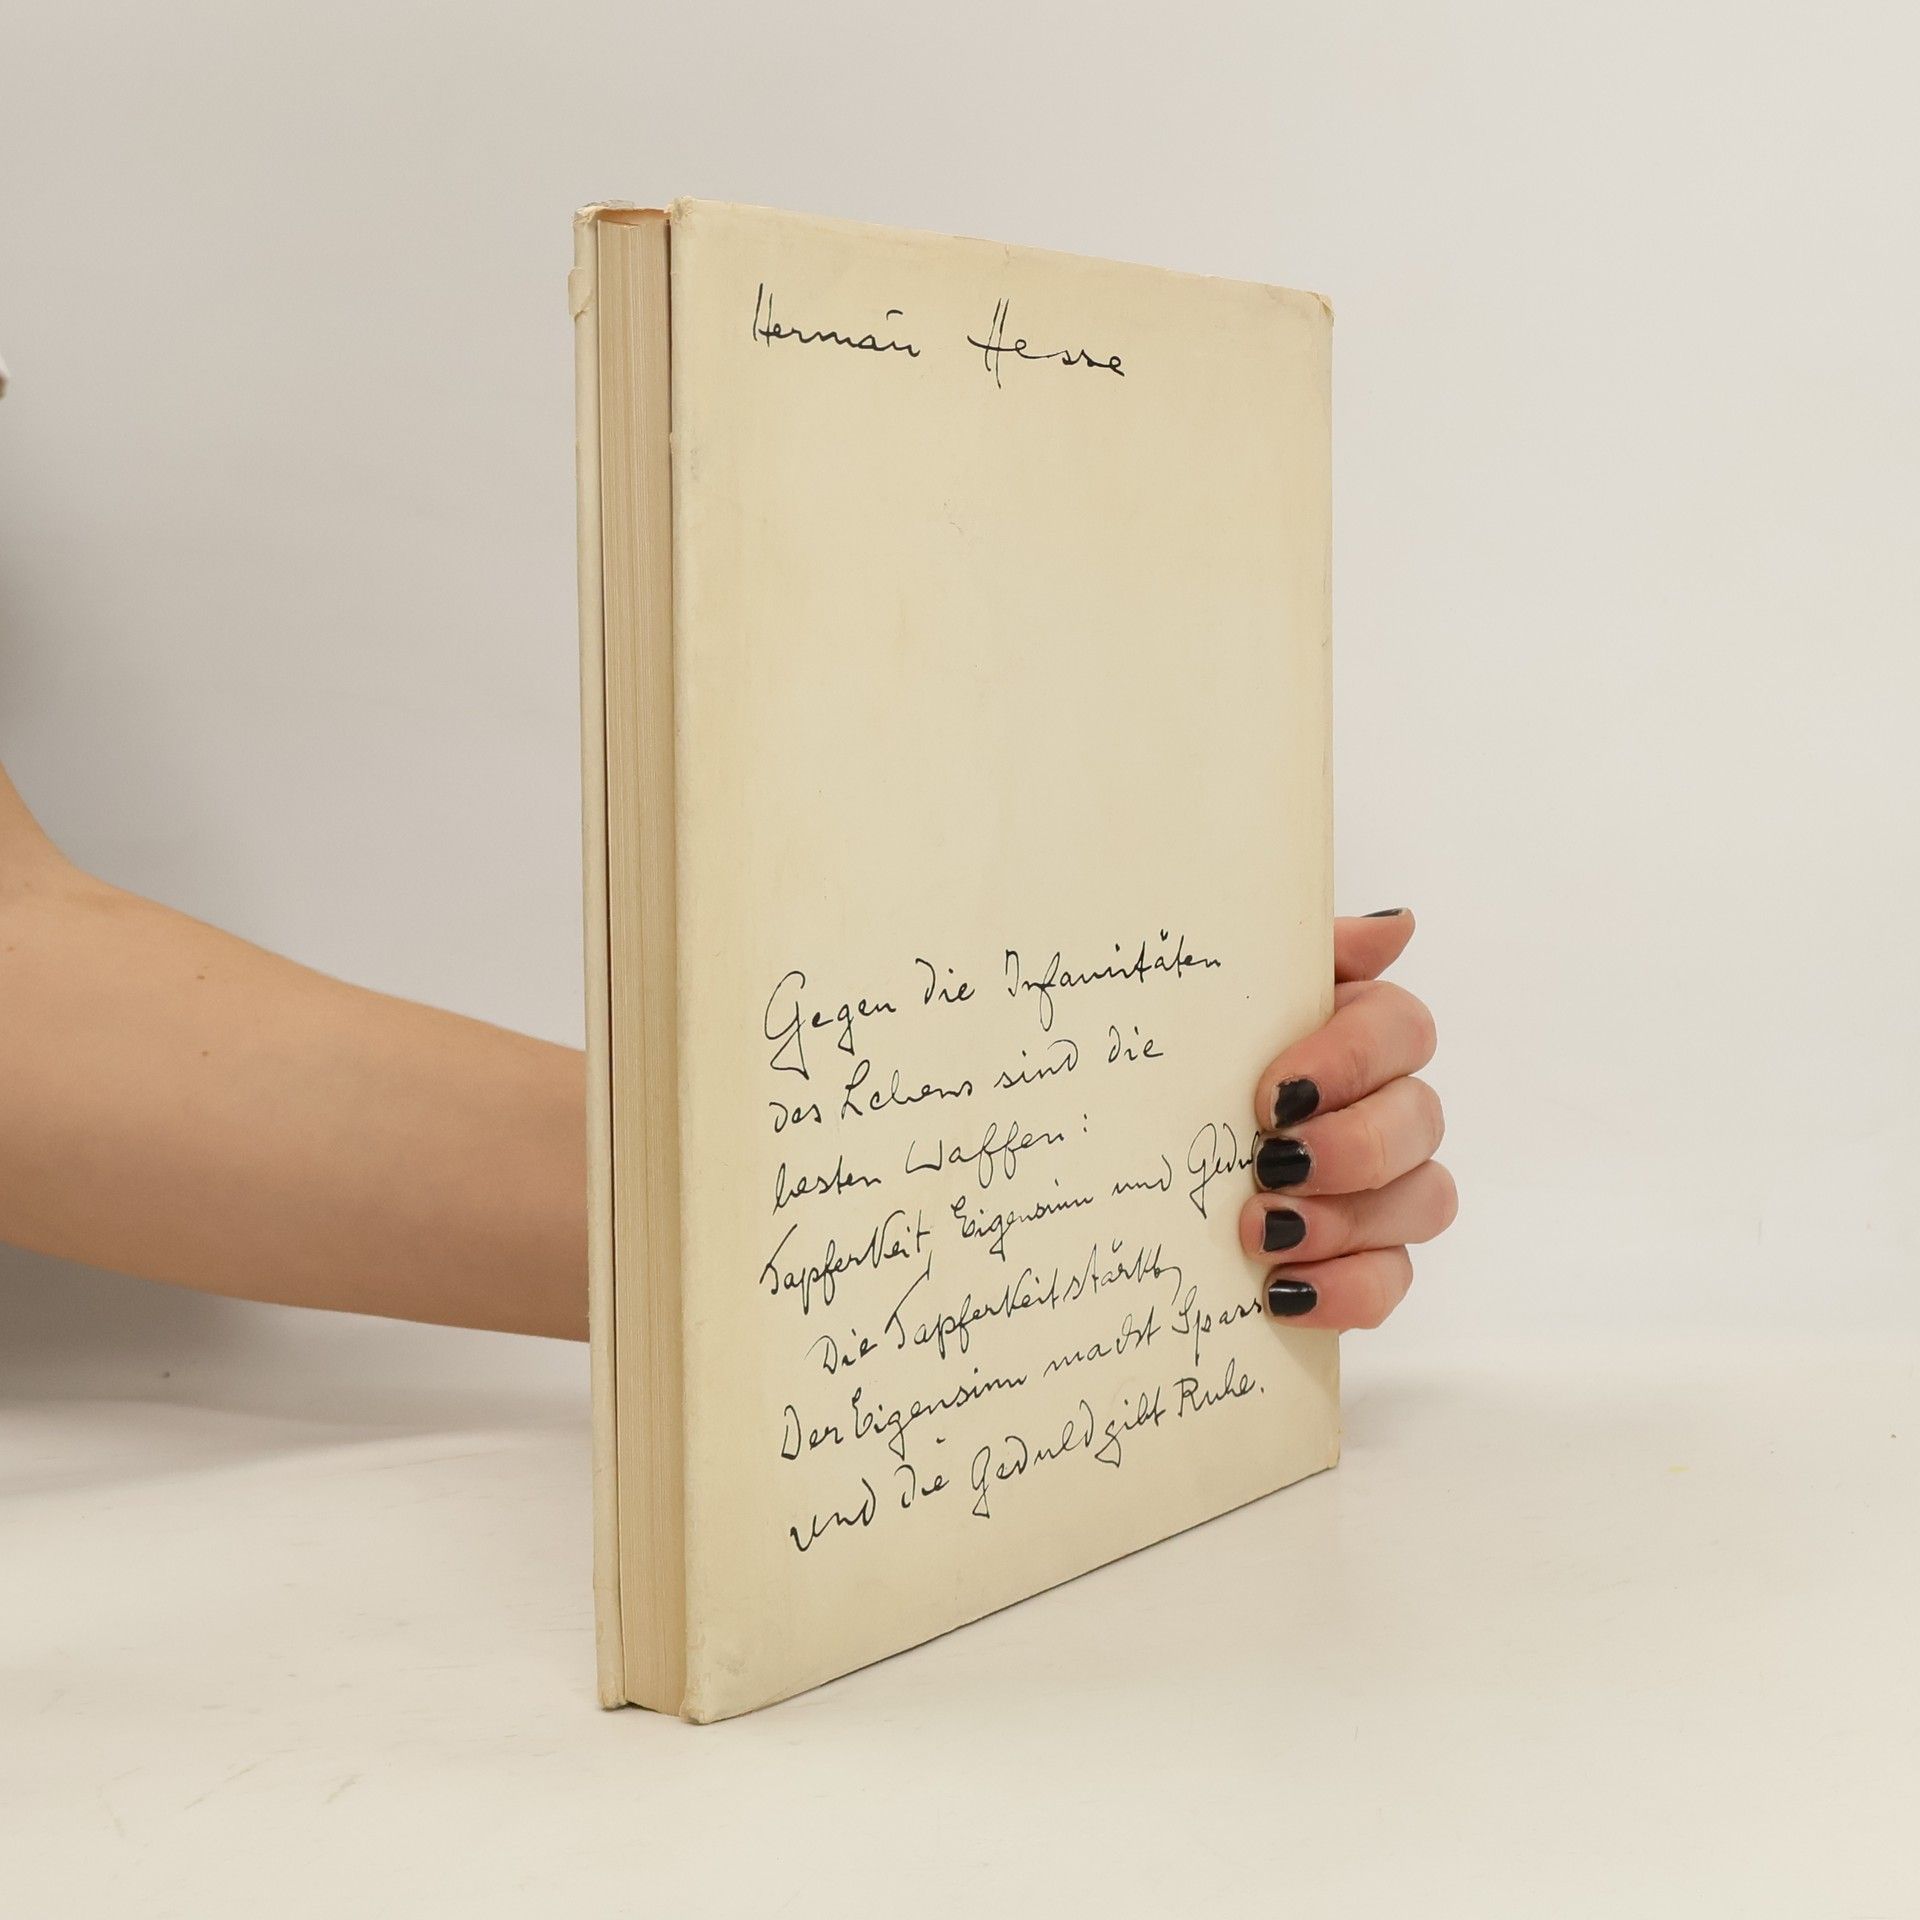 Hermañ Hesse
Gegen die Infamitäten
des Lebens sind die
besten Waffen:
Tapferkeit, Eigensinn und Gedul
Die Tapferkeit stärkt,
Der Eigensinn macht Spass
und die Geduld gibt Ruhe.